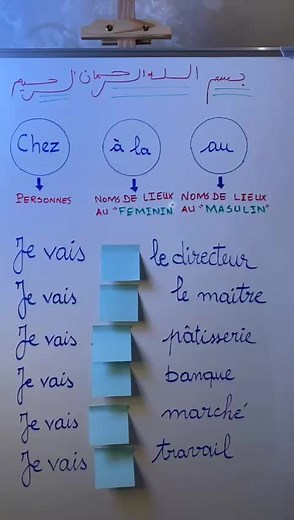 بسم الله الرحمان الرحيم
Chez à la au
PERSONNES NOMS DE LIEUX AU "FEMININ" NOMS DE LIEUX AU "MASULIN"
Je vais le directeur
Je vais le maître
Je vais pâtisserie
Je vais banque
Je vais marché
Je vais travail